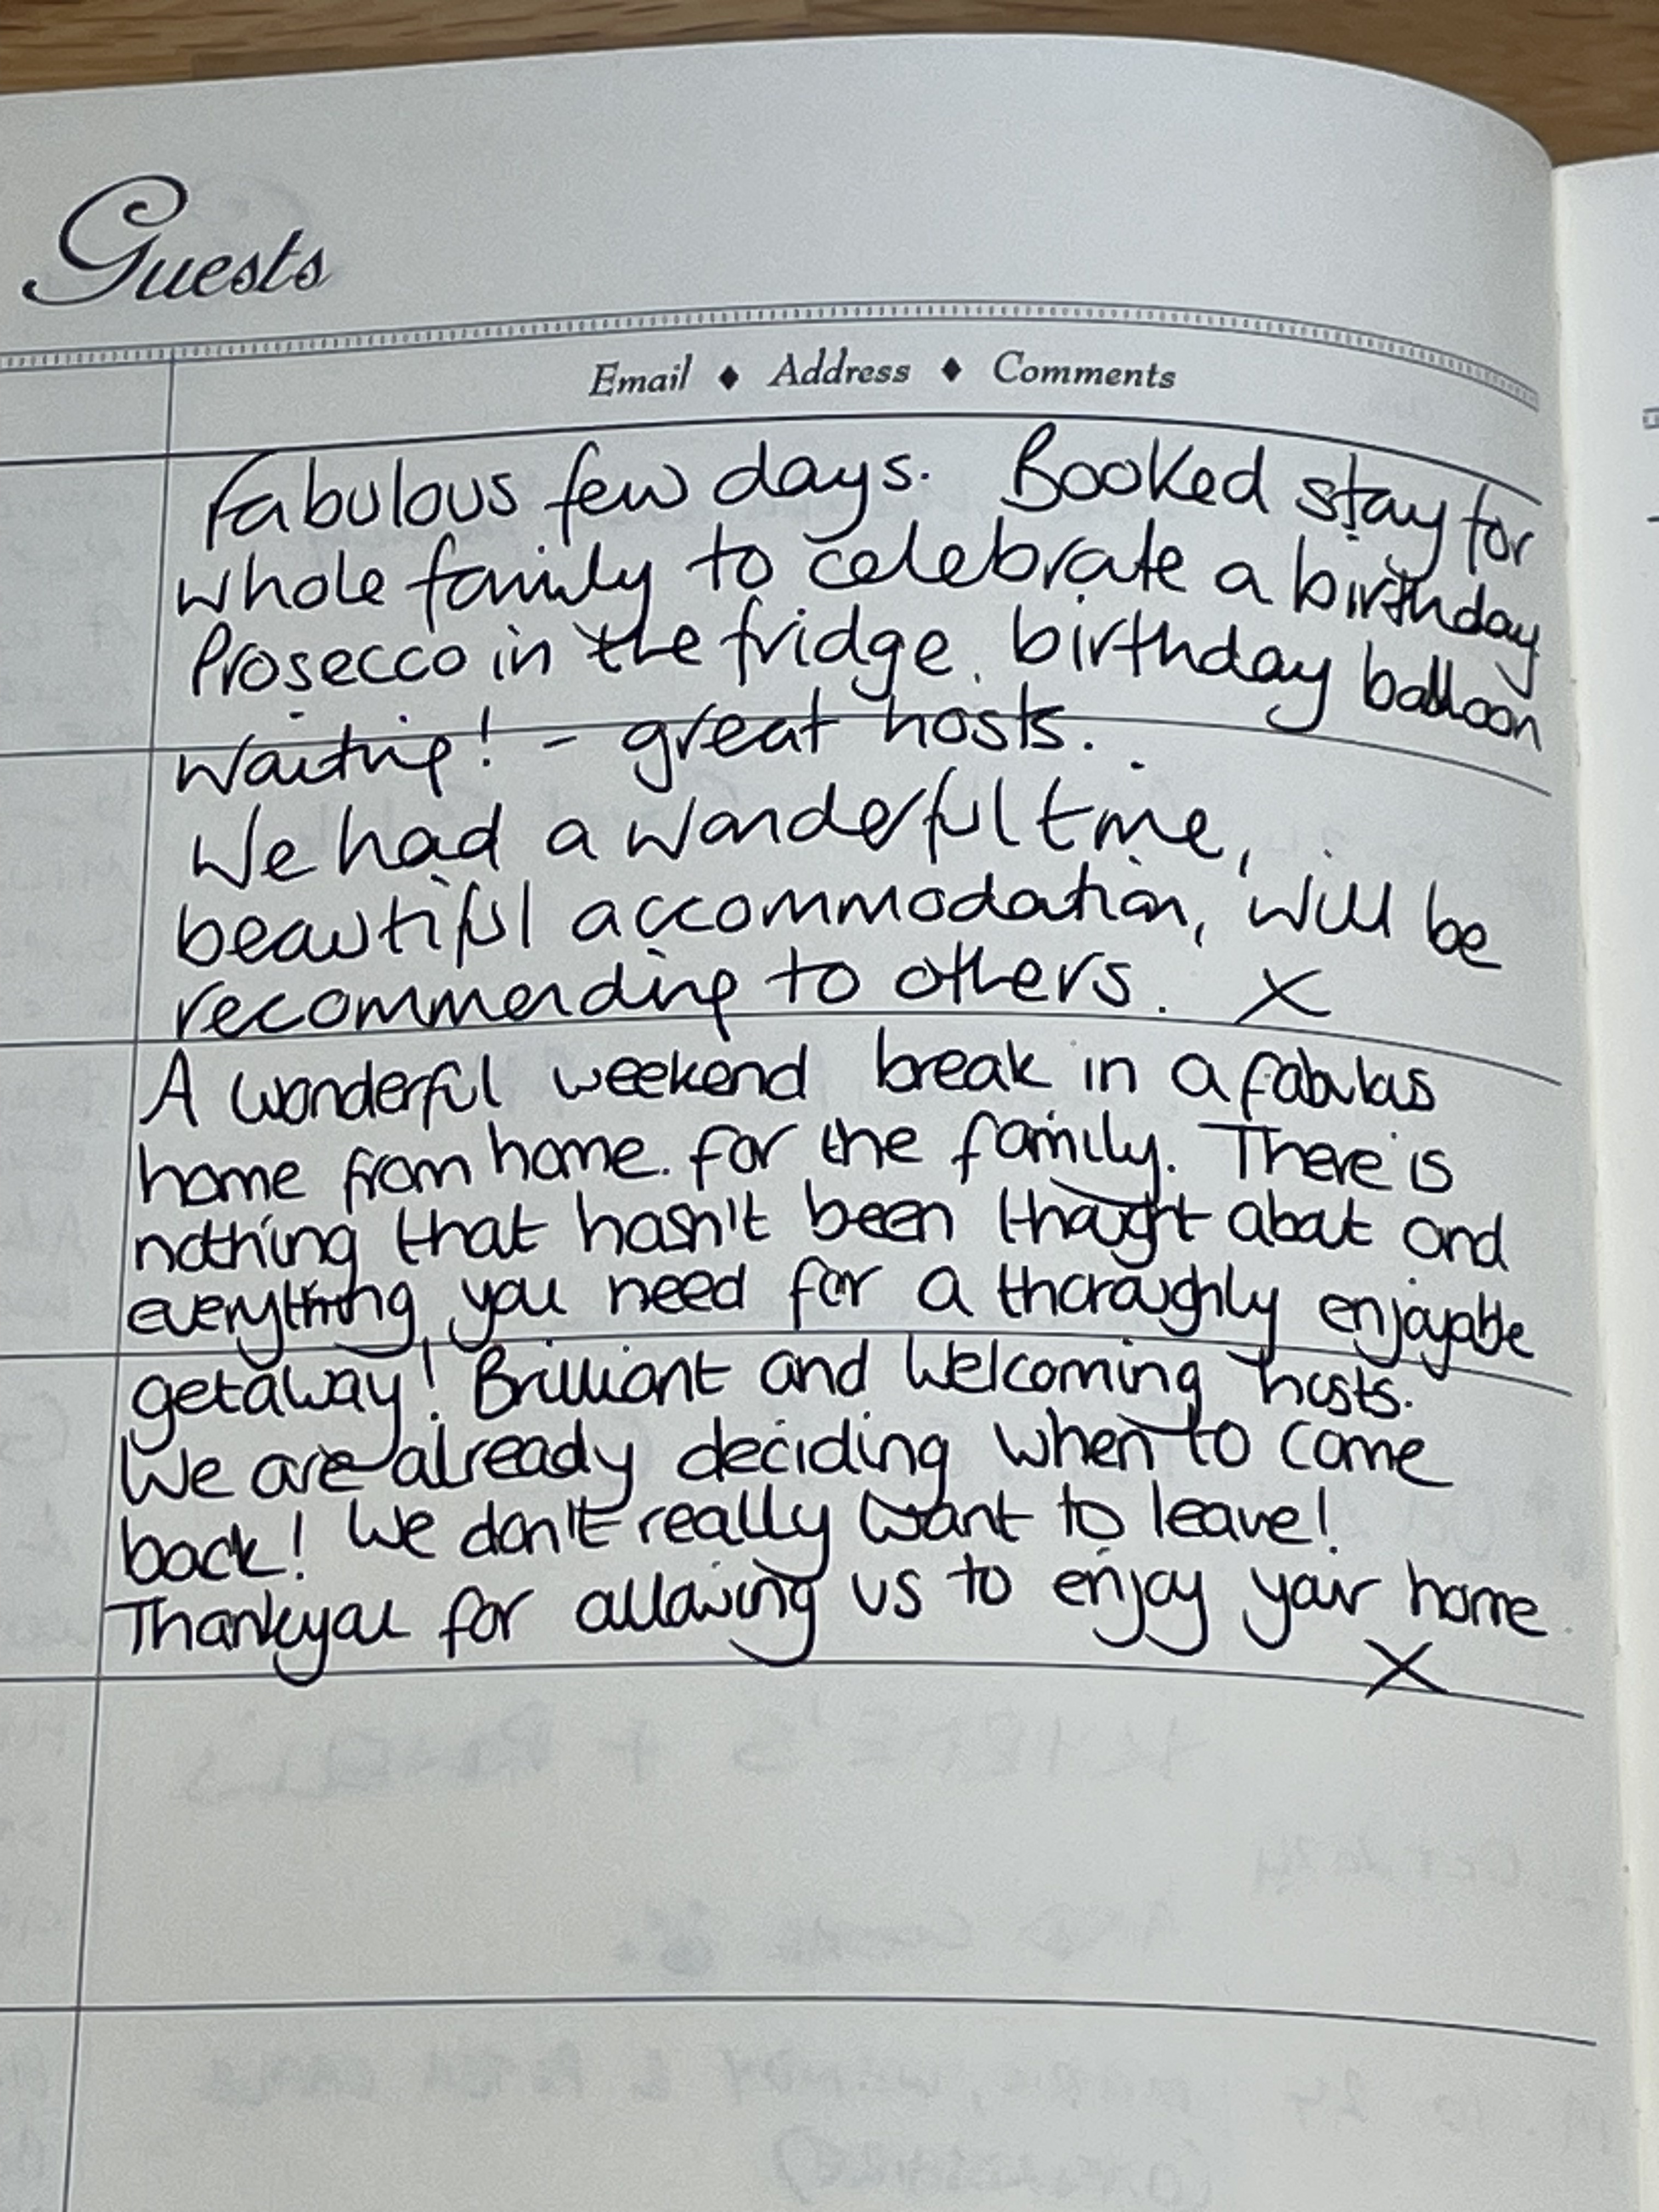 Guests
Email ♦ Address ♦ Comments
Fabulous few days. Booked stay for
whole family to celebrate a birthday
Prosecco in the fridge, birthday balloon
waiting! - great hosts.
We had a wonderful time,
beautiful accommodation, will be
recommending to others. X
A wonderful weekend break in a fabulous
home from home. for the family. There is
nothing that hasn't been thought about and
everything you need for a thoroughly enjoyable
getaway! Brilliant and welcoming hosts.
We are already deciding when to come
back! We don't really want to leave!
Thankyou for allowing us to enjoy your home
X